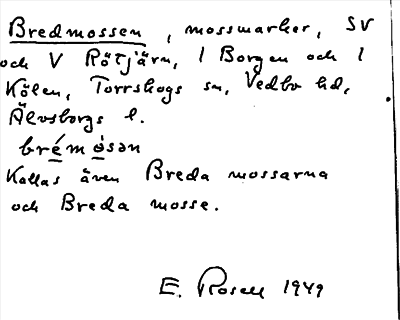 Bredmossen, mossmarker, SV
och V Rötjärn, 1 Borgen och 1
Kölen, Torrskogs sn, Vedbo hd,
Älvsborgs l.
brémȯsən
Kallas även Breda mossarna
och Breda mosse.
E. Rosell 1949